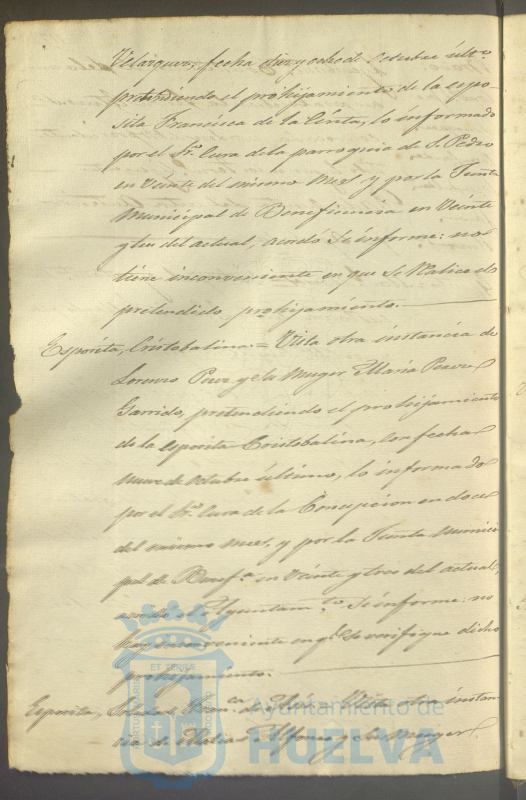 Velazquez, fecha diez y ocho de Octubre últº
pretendiendo el prohijamiento de la espo-
sita Francisca de la Cinta, lo informado
por el Sr. Cura de la parroquia de S. Pedro
en Veinte del mismo mes y por la Junta
Municipal de Beneficencia en Veinte
y tres del actual, acordó Se informe: no
tiene inconveniente en que Se Realice el
pretendido prohijamiento.
Esposita, Cristobalina = Vista otra instancia de
Lorenzo Perez y Su Muger Maria Perez
Garrido, pretendiendo el prohijamiento
de la esposita Cristobalina, con fecha
nueve de Octubre último, lo informado
por el Sr. Cura de la Concepcion en doce
del mismo mes, y por la Junta Munici
pal de Benefª en Veinte y tres del actual,
acordó el Ayuntamto Se informe: no
hay inconveniente en qe Se verifique dicho
prohijamiento.
Esposita, Franca de Vista otra instan
cia de Alfonso y Su Muger
ET TERRAE
Ayuntamiento de
HUELVA